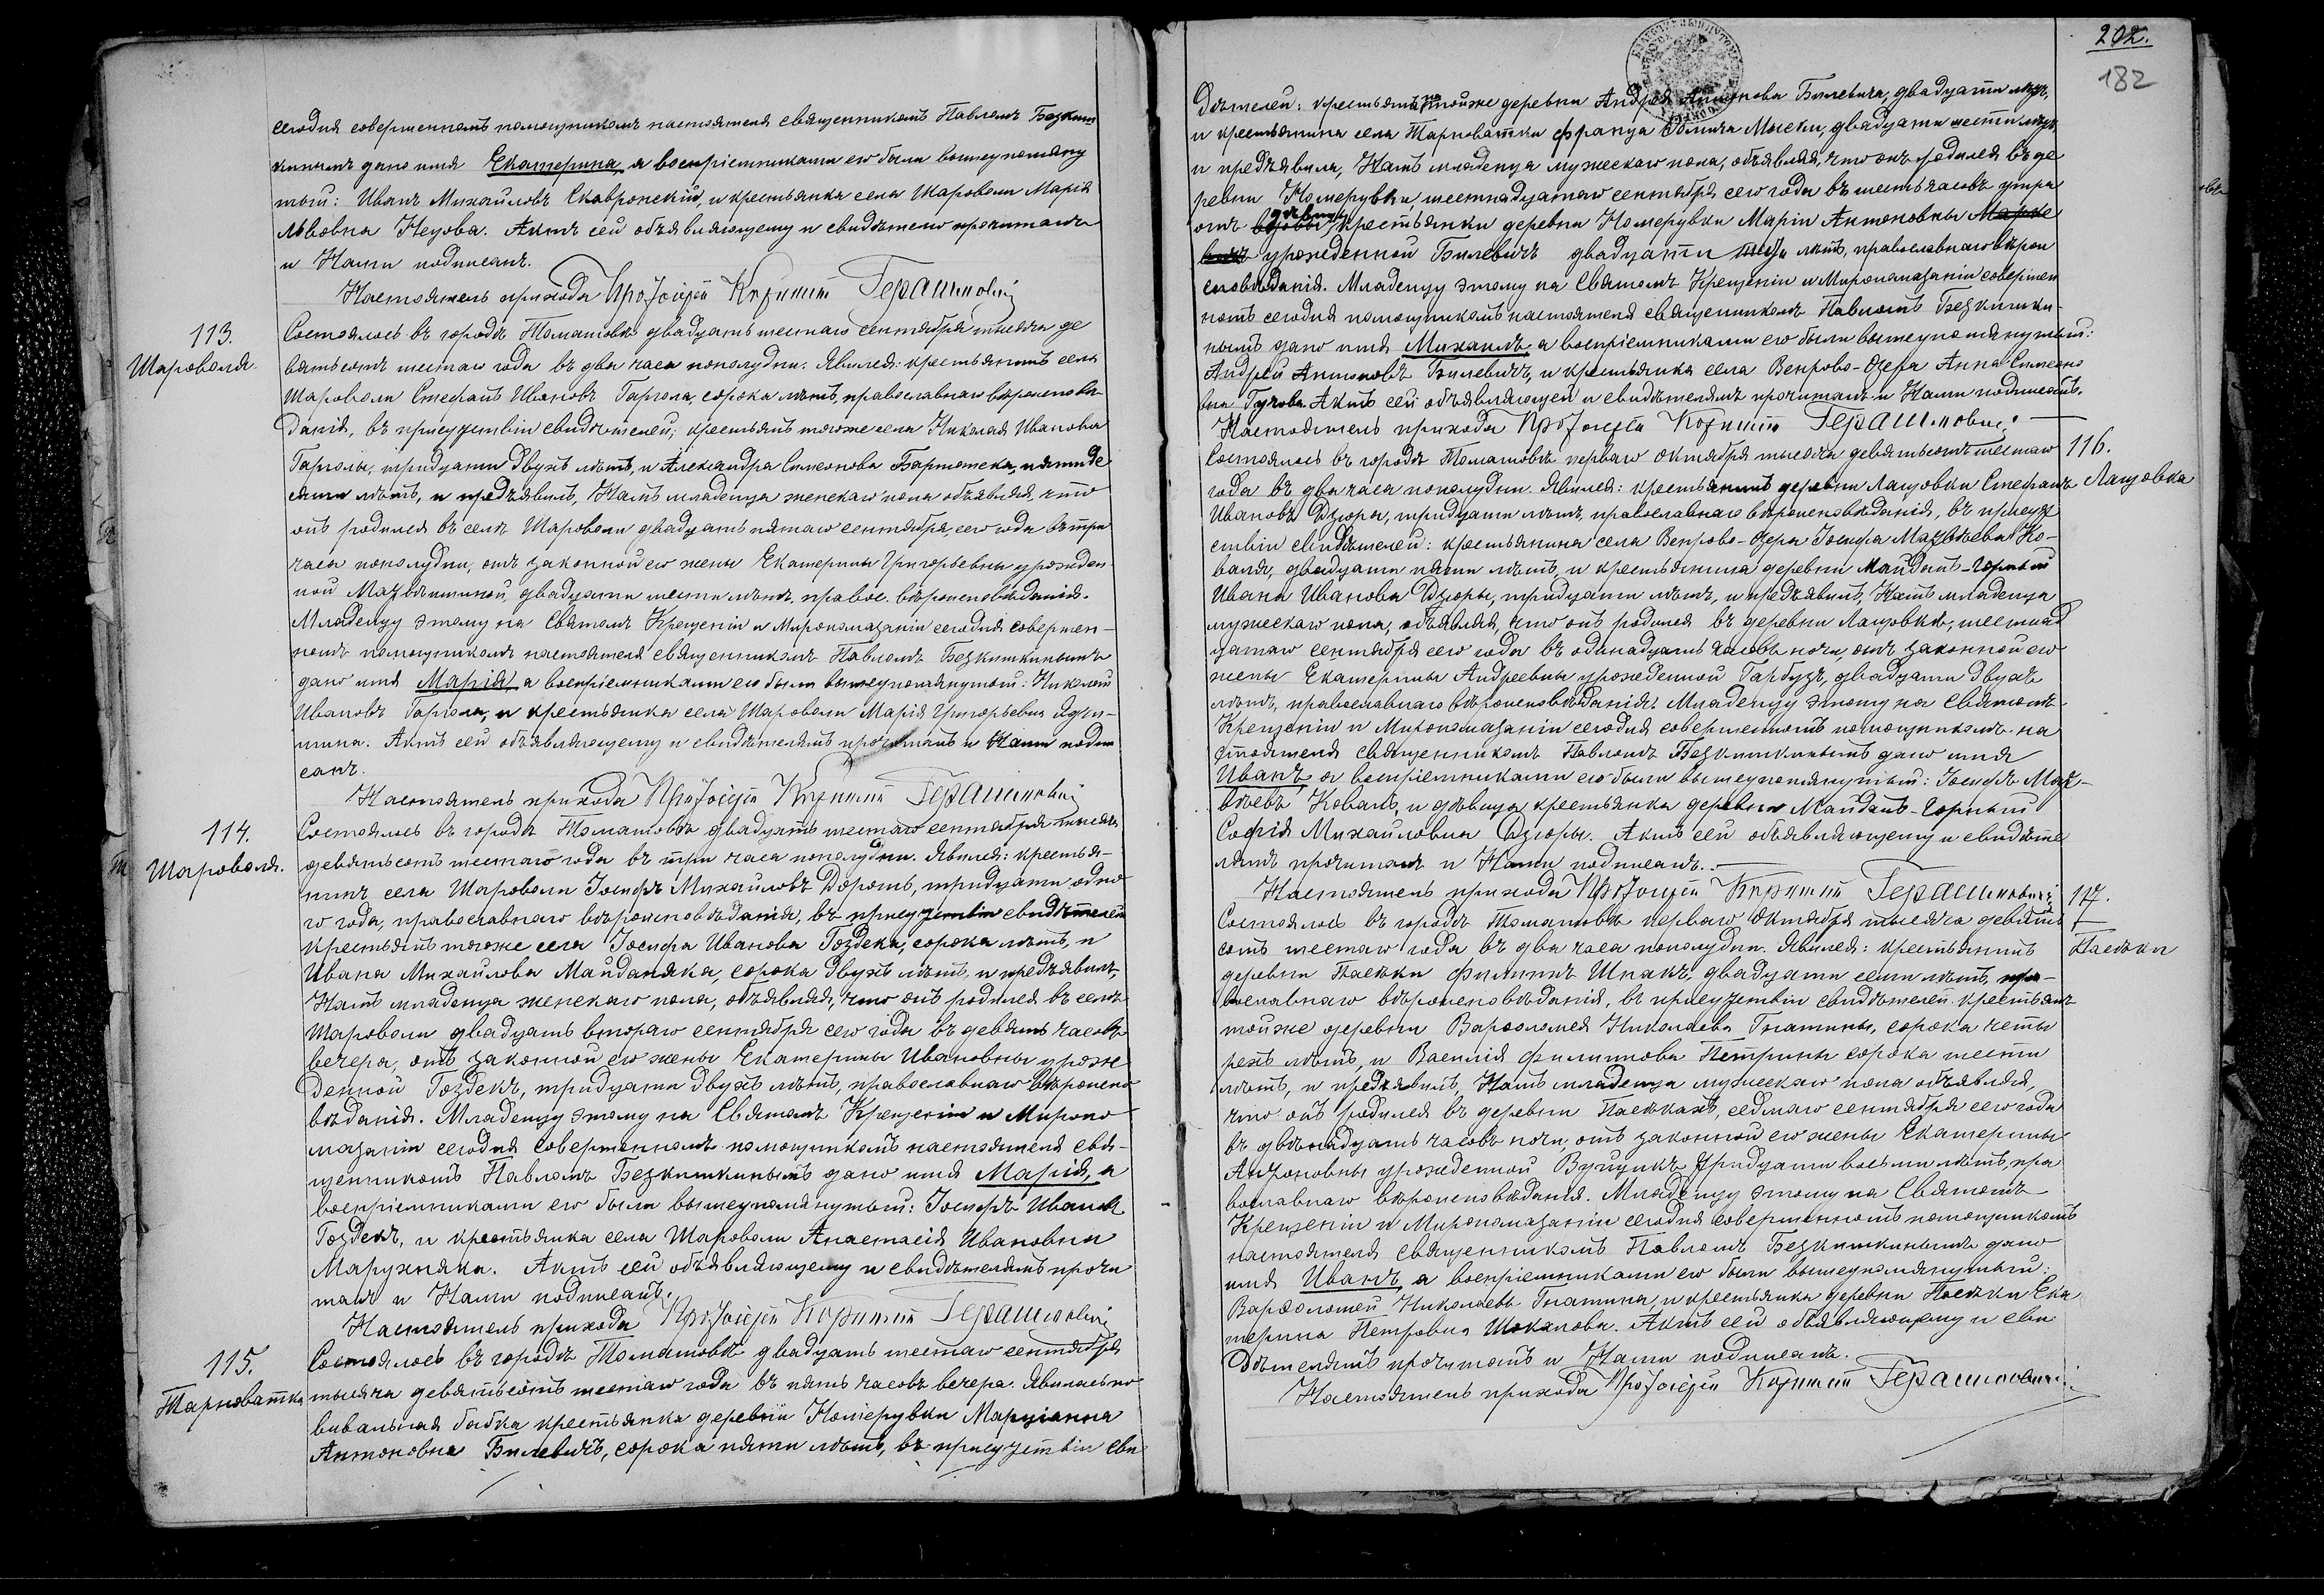 сегодня совершенномъ помощникомъ настоятеля священникомъ Павломъ Безкиш
кинымъ дано имя Екатерина, а воспріемниками его были вышеупомяну
тый: Иванъ Михайловъ Скавронскій, и крестьянка села Шароволи Марія
Львовна Неѵова. Актъ сей объявляющему и свидѣтелю прочитанъ
и Нами подписанъ.
Настоятель прихода Протоіерей Герашиновичъ
113.
Шароволя.
Состоялось въ городѣ Томашовѣ двадцать шестаго сентября тысяча де
вятьсотъ шестаго года въ два часа пополудни. Явился: крестьянинъ села
Шароволи Стефанъ Ивановъ Гаргола, сорока лѣтъ, православнаго вѣроиспов-
данія, въ присутствіи свидѣтелей: крестьянъ тогоже села Николая Иванова
Гарголы, тридцати двухъ лѣтъ, и Александра Симеонова Бартошека, пятиде
сяти лѣтъ, и предъявилъ, Намъ младенца женскаго пола объявляя, что
онъ родился въ селѣ Шароволи двадцать пятаго сентября, сего года въ три
часа пополудни, отъ законной его жены Екатерины Григорьевны урожден
ной двадцати шести лѣтъ, правос. вѣроисповѣданія.
Младенцу этому на Святомъ Крещеніи и Миропомазаніи сегодня совершен-
номъ помощникомъ настоятеля священникомъ Павломъ Безкишкинымъ
дано имя Марія, а воспріемниками его были вышеупомянутый: Николай
Ивановъ Гаргола, и крестьянка села Шароволи Марія Григорьевна
шина. Актъ сей объявляющему и свидѣтелямъ прочитанъ и Нами подпи
санъ.
Настоятель прихода Протоіерей Герашиновичъ
114.
Шароволя.
Состоялось въ городѣ Томашовѣ двадцать шестаго сентября тысяча
девятьсотъ шестаго года въ три часа пополудни. Явился: крестья-
нинъ села Шароволи Іосифъ Михайловъ Дорошъ, тридцати одно
го года, православнаго вѣроисповѣданія, въ присутствіи свидѣтелей
крестьянъ тогоже села Іосифа Иванова Гоздека, сорока лѣтъ, и
Ивана Михайлова Майданяка, сорока двухъ лѣтъ, и предъявилъ,
Намъ младенца женскаго пола, объявляя, что онъ родился въ селѣ
Шароволи двадцать втораго сентября сего года въ девять часовъ
вечера, отъ законной его жены Екатерины Ивановны урож
денной Гоздекъ, тридцати двухъ лѣтъ, православнаго вѣроиспо
вѣданія. Младенцу этому на Святомъ Крещеніи и Миропо
мазаніи сегодня совершенномъ помощникомъ настоятеля свя-
щенникомъ Павломъ Безкишкинымъ дано имя Марія, а
воспріемниками его были вышеупомянутый: Іосифъ Ивановъ
Гоздекъ, и крестьянка села Шароволи Анастасія Ивановна
Марухняка. Актъ сей объявляющему и свидѣтелямъ прочи
танъ и Нами подписанъ.
Настоятель прихода Протоіерей Герашиновичъ
115.
Тарноватка
Состоялось въ городѣ Томашовѣ двадцать шестаго сентября
тысяча девятьсотъ шестаго года въ пять часовъ вечера. Явилась по
вивальная бабка крестьянка деревни Номерувки Марціанна
Антоновна Билевичъ, сорока пяти лѣтъ, въ присутствіи сви
202.
182
дѣтелей: крестьянина тойже деревни Андрея Антонова Билевича, двадцати лѣтъ,
и крестьянина села Тарноватки Франца Мыски, двадцати шести лѣтъ,
и предъявила, Намъ младенца мужескаго пола, объявляя, что онъ родился въ де
ревни Номерувки, шестнадцатаго сентября сего года въ шесть часовъ утра
отъ вдовы дѣвицы крестьянки деревни Номерувки Маріи Антоновны Марке
вичъ урожденной Билевичъ двадцати лѣтъ, православнаго вѣрои
сповѣданія. Младенцу этому на Святомъ Крещеніи и Миропомазаніи совершен
номъ сегодня помощникомъ настоятеля священникомъ Павломъ Безкишки-
нымъ дано имя Михаилъ, а воспріемниками его были вышеупомянутый:
Андрей Антоновъ Билевичъ, и крестьянка села Венрово-Озера Анна Симеоно
вна Гугова. Актъ сей объявляющей и свидѣтелямъ прочитанъ и Нами подписанъ.
Настоятель прихода Протоіерей Герашиновичъ
116.
Лащовка
Состоялось въ городѣ Томашовѣ перваго октября тысяча девятьсотъ шестаго
года въ два часа пополудни. Явился: крестьянинъ деревни Лащовки Стефанъ
Ивановъ Дзюра, тридцати лѣтъ, православнаго вѣроисповѣданія, въ присут
ствіи свидѣтелей: крестьянина села Венрово-Озера Іосифа Матвѣева Ко-
валя, двадцати пяти лѣтъ, и крестьянина деревни Майданъ-Горный
Ивана Иванова Дзюры, тридцати лѣтъ, и предъявилъ, Намъ младенца
мужескаго пола, объявляя, что онъ родился въ деревни Лащовкѣ, шестнад
цатаго сентября сего года въ одинадцать часовъ ночи, отъ законной его
жены Екатерины Андреевны урожденной Гарбузъ, двадцати двухъ
лѣтъ, православнаго вѣроисповѣданія. Младенцу этому на Святомъ
Крещеніи и Миропомазаніи сегодня совершенномъ помощникомъ на
стоятеля священникомъ Павломъ Безкишкинымъ дано имя
Иванъ, а воспріемниками его были вышеупомянутый: Іосифъ Мат-
вѣевъ Коваль, и дѣвица крестьянка деревни Майданъ-Горный
Софія Михайловна Дзюры. Актъ сей объявляющему и свидѣте
лямъ прочитанъ и Нами подписанъ.
Настоятель прихода Протоіерей Герашиновичъ
117.
Пасѣки
Состоялось въ городѣ Томашовѣ перваго октября тысяча девять
сотъ шестаго года въ два часа пополудни. Явился: крестьянинъ
деревни Пасѣки Филиппъ Шпакъ, двадцати семи лѣтъ, пра-
вославнаго вѣроисповѣданія, въ присутствіи свидѣтелей крестьянъ
тойже деревни Варѳоломея Николаева Гнатины, сорока четы
рехъ лѣтъ, и Василія Филиппова Петрины сорока шести
лѣтъ, и предъявилъ, Намъ младенца мужескаго пола объявляя,
что онъ родился въ деревни Пасѣкахъ, седмаго сентября сего года
въ двѣнадцать часовъ ночи, отъ законной его жены Екатерины
Антоновны урожденной тридцати восьми лѣтъ, пра
вославнаго вѣроисповѣданія. Младенцу этому на Святомъ
Крещеніи и Миропомазаніи сегодня совершенномъ помощникомъ
настоятеля священникомъ Павломъ Безкишкинымъ дано
имя Иванъ, а воспріемниками его были вышеупомянутый:
Варѳоломей Николаевъ Гнатина, и крестьянка деревни Пасѣки Ека
терина Петровна Шокалова. Актъ сей объявляющему и сви
дѣтелямъ прочитанъ и Нами подписанъ.
Настоятель прихода Протоіерей Герашиновичъ